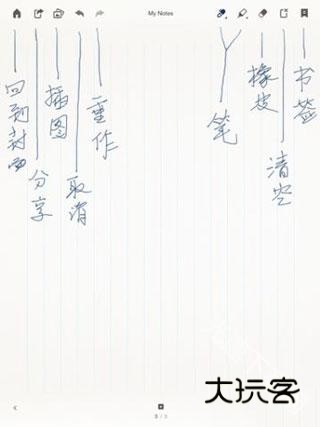 My Notes
回到封面
分享
插图
取消
重作
笔
橡皮
清空
书签
3 / 3
大玩客